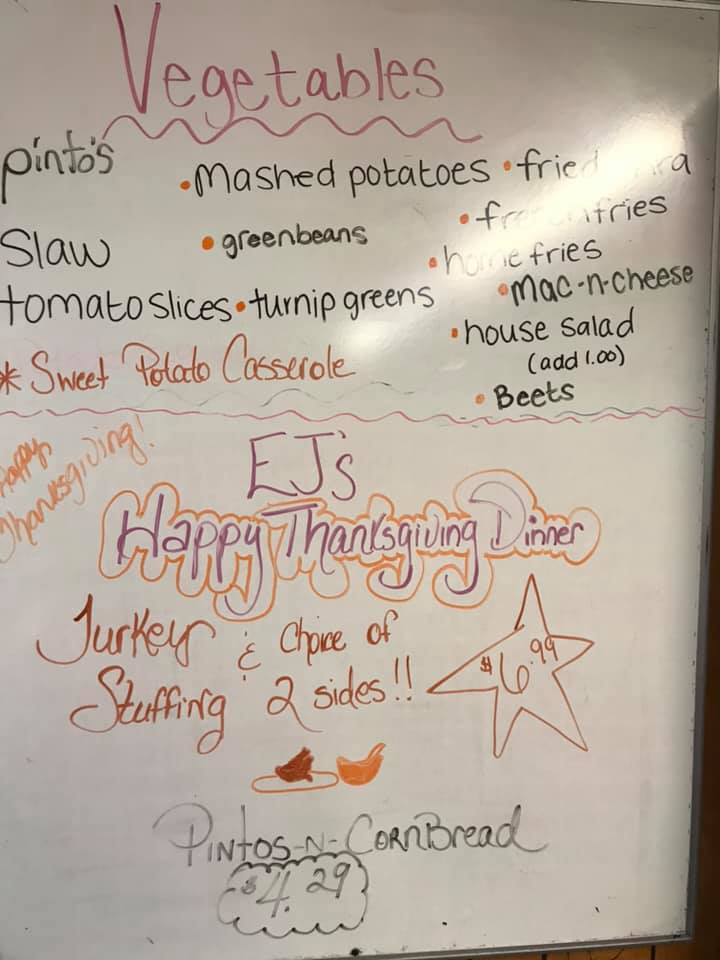 Vegetables
pinto's
• Mashed potatoes
• fried
Slaw
• greenbeans
• fries
• home fries
tomato slices • turnip greens
• Mac-n-cheese
• house salad
(add 1.00)
* Sweet Potato Casserole
• Beets
Happy Thanksgiving!
EJ's
Happy Thanksgiving Dinner
Turkey & Choice of
Stuffing 2 sides!!
$6.99
Pintos-n-CornBread
$4.29